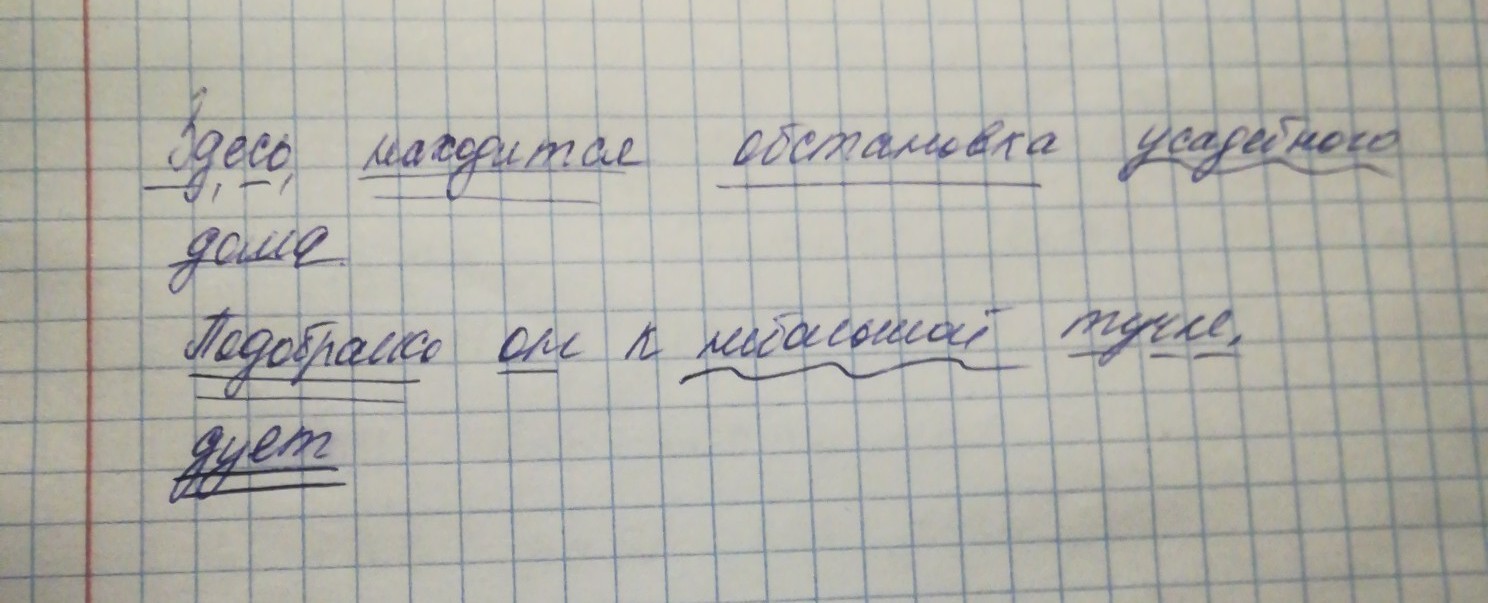 Здесь находится обстановка усадебного
дома.
Подобрался он к небольшой тучке,
дует